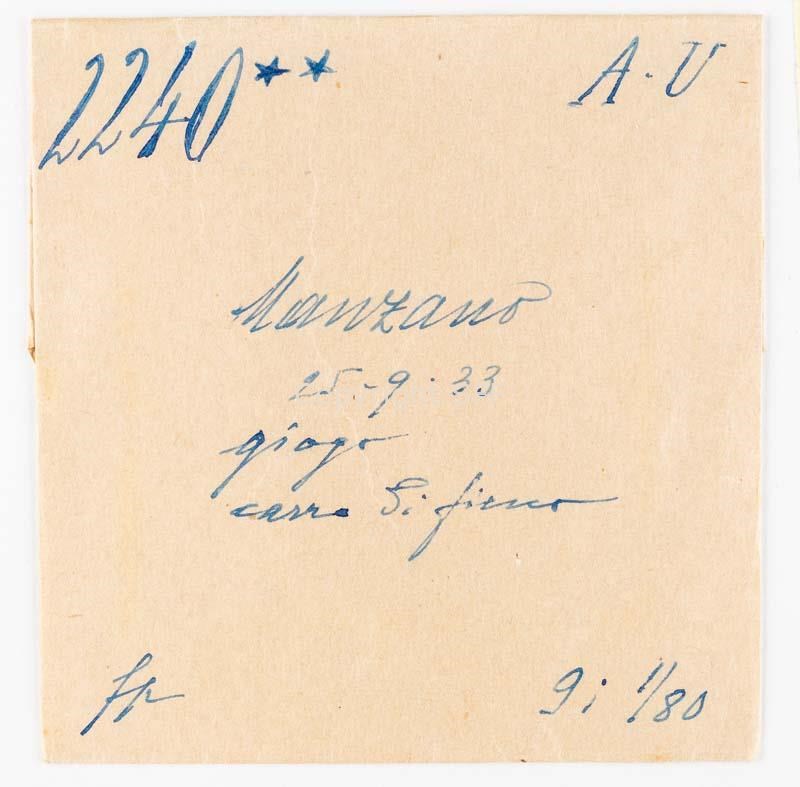 2240** A·U
Manzano
25-9·33
giogo
carro di fieno
fp 9i 1/80